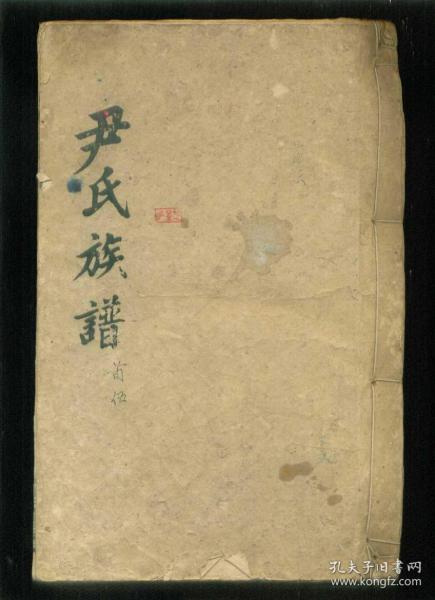 尹氏族譜
首伍
孔夫子旧书网
http://www.kongfz.com